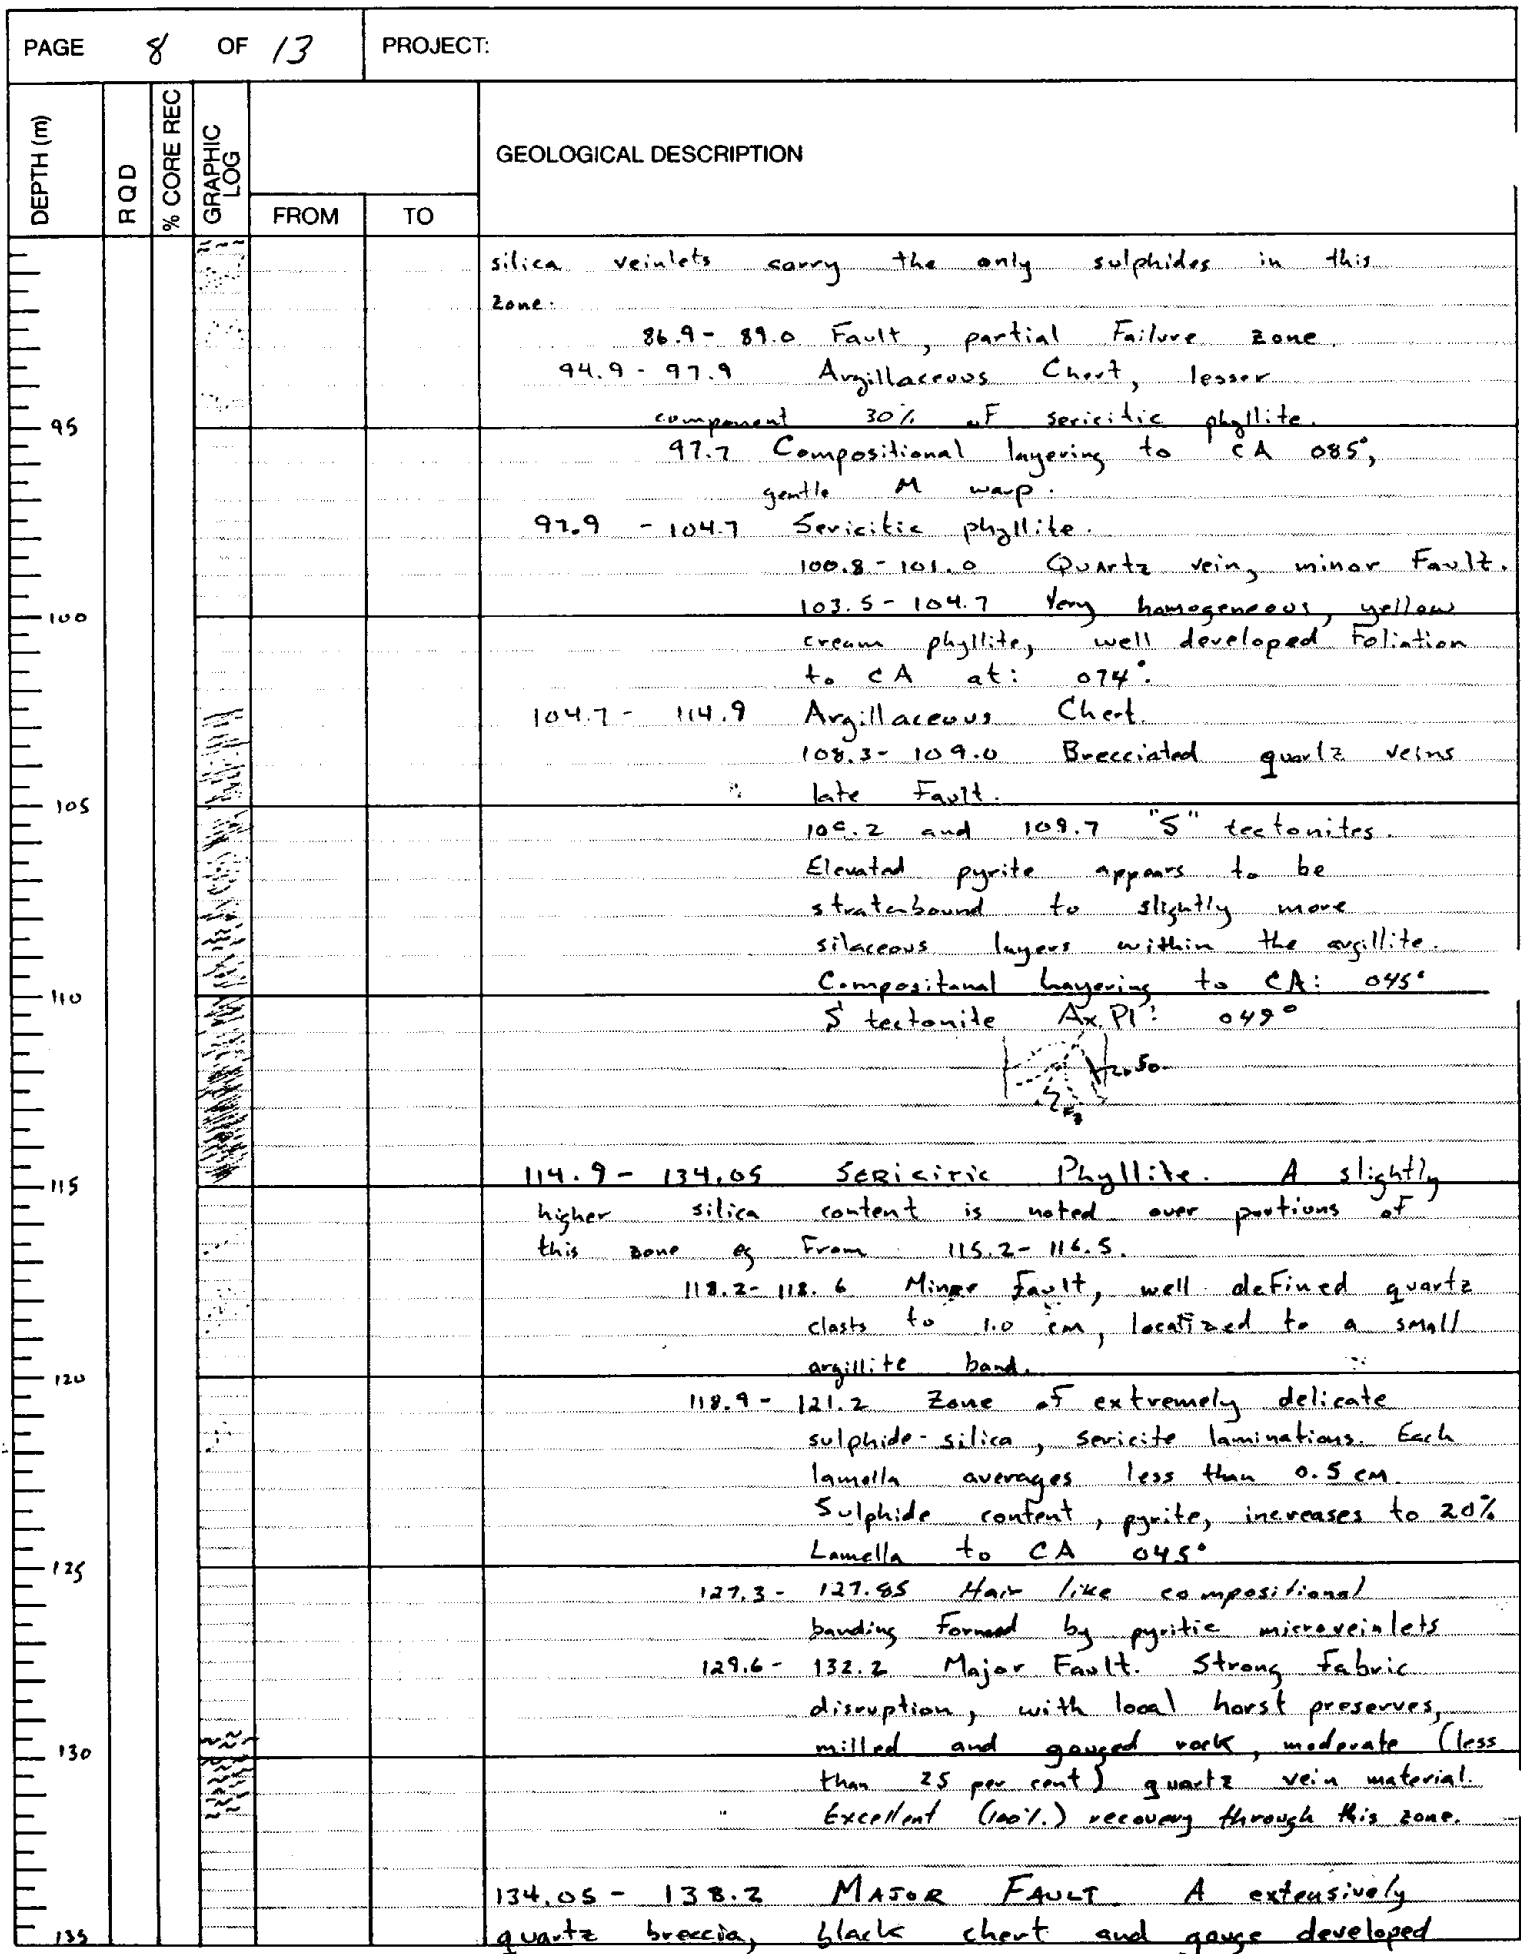 PAGE 8 OF 13 PROJECT:
DEPTH (m)
R Q D
% CORE REC
GRAPHIC LOG
FROM
TO
GEOLOGICAL DESCRIPTION
silica veinlets carry the only sulphides in this
zone.
86.9 - 89.0 Fault, partial Failure zone.
94.9 - 97.9 Argillaceous Chert, lesser
95
component 30% of sericitic phyllite.
97.7 Compositional layering to CA 085°,
gentle M warp.
97.9 - 104.7 Sericitic phyllite.
100.8 - 101.0 Quartz vein, minor Fault.
100
103.5 - 104.7 Very homogeneous, yellow
cream phyllite, well developed Foliation
to CA at: 074°.
104.7 - 114.9 Argillaceous Chert.
108.3 - 109.0 Brecciated quartz veins
105
late Fault.
and 109.7 "S" tectonites.
Elevated pyrite appears to be
stratabound to slightly more
silaceous layers within the argillite.
110
Compositanal Layering to CA: 045°
S tectonite Ax. Pl: 049°
114.9 - 134.05 SERICITIC Phyllite. A slightly
115
higher silica content is noted over portions of
this zone eg From 115.2 - 116.5.
118.2 - 118.6 Minor Fault, well defined quartz
clasts to 1.0 cm, localized to a small
120
argillite band.
118.9 - 121.2 Zone of extremely delicate
sulphide-silica, sericite laminations. Each
lamella averages less than 0.5 cm.
Sulphide content, pyrite, increases to 20%
125
Lamella to CA 045°
127.3 - 127.85 Hair like compositional
banding Formed by pyritic microveinlets
129.6 - 132.2 Major Fault. Strong fabric
disruption, with local horst preserves,
130
milled and gouged rock, moderate (less
than 25 per cent) quartz vein material.
Excellent (100%) recovery through this zone.
134.05 - 138.2 MAJOR FAULT A extensively
135
quartz breccia, black chert and gouge developed